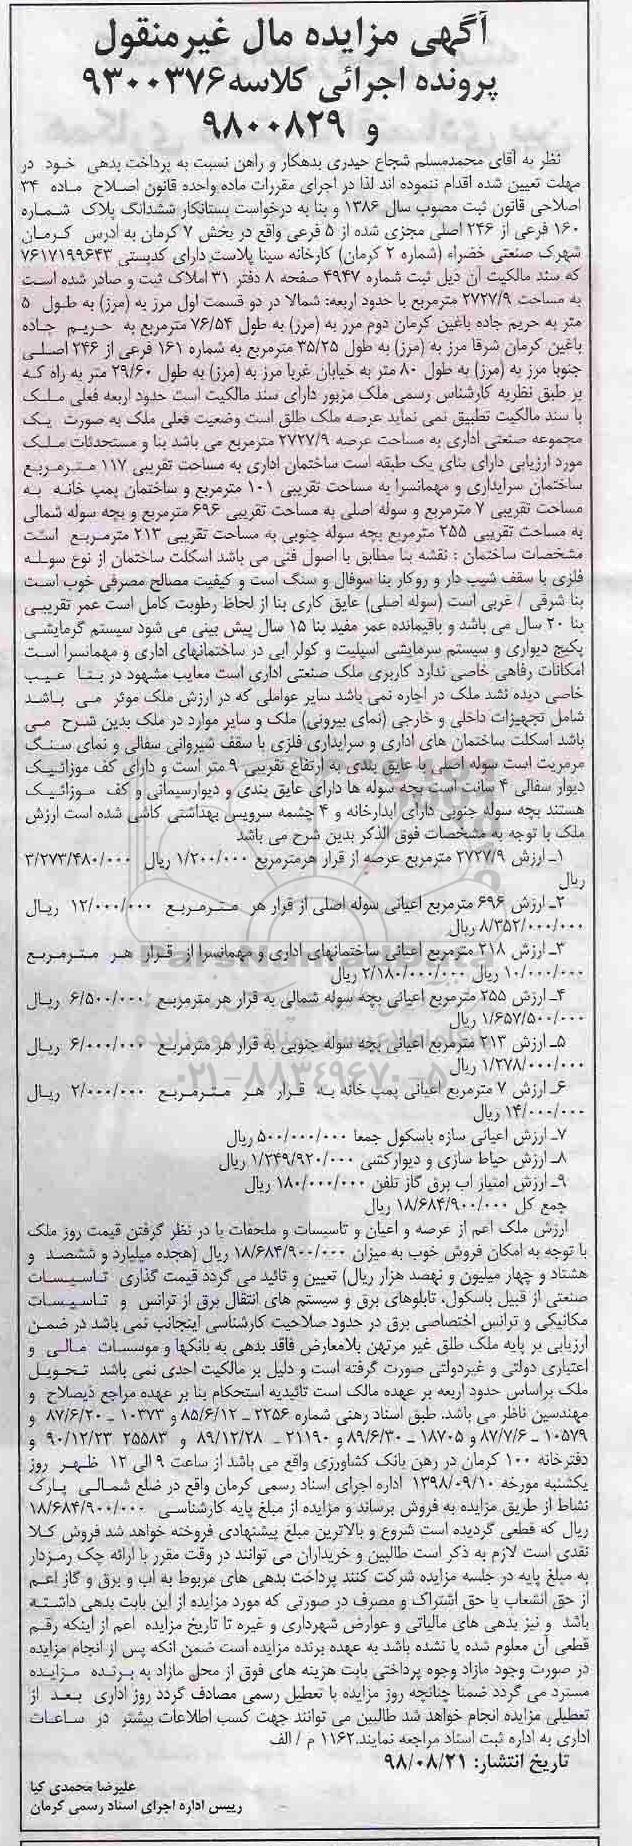 آگهی مزایده مال غیرمنقول
پرونده اجرائی کلاسه ۹۳۰۰۳۷۶
و ۹۸۰۰۸۲۹
نظر به آقای محمدمسلم شجاع حیدری بدهکار و راهن نسبت به پرداخت بدهی خود در
مهلت تعیین شده اقدام ننموده اند لذا در اجرای مقررات ماده واحده قانون اصلاح ماده ۳۴
اصلاحی قانون ثبت مصوب سال ۱۳۸۶ و بنا به درخواست بستانکار ششدانگ پلاک شماره
۱۶۰ فرعی از ۲۴۶ اصلی مجزی شده از ۵ فرعی واقع در بخش ۷ کرمان به آدرس کرمان
شهرک صنعتی خضراء (شماره ۲ کرمان) کارخانه سینا پلاست دارای کدپستی ۷۶۱۷۱۹۹۶۴۳
که سند مالکیت آن ذیل ثبت شماره ۴۹۴۷ صفحه ۸ دفتر ۳۱ املاک ثبت و صادر شده است
به مساحت ۲۷۲۷/۹ مترمربع با حدود اربعه: شمالا در دو قسمت اول مرز به (مرز) به طول ۵
متر به حریم جاده باغین کرمان دوم مرز به (مرز) به طول ۷۶/۵۴ مترمربع به حریم جاده
باغین کرمان شرقا مرز به (مرز) به طول ۳۵/۲۵ مترمربع به شماره ۱۶۱ فرعی از ۲۴۶ اصلی
جنوبا مرز به (مرز) به طول ۸۰ متر به خیابان غربا مرز به (مرز) به طول ۲۹/۶۰ متر به راه که
بر طبق نظریه کارشناس رسمی ملک مزبور دارای سند مالکیت است حدود اربعه فعلی ملک
با سند مالکیت تطبیق نمی نماید عرصه ملک طلق است وضعیت فعلی ملک به صورت یک
مجموعه صنعتی اداری به مساحت عرصه ۲۷۲۷/۹ مترمربع می باشد بنا و مستحدثات ملک
مورد ارزیابی دارای بنای یک طبقه است ساختمان اداری به مساحت تقریبی ۱۱۷ مترمربع
ساختمان سرایداری و مهمانسرا به مساحت تقریبی ۱۰۱ مترمربع و ساختمان پمپ خانه به
مساحت تقریبی ۷ مترمربع و سوله اصلی به مساحت تقریبی ۶۹۶ مترمربع و بچه سوله شمالی
به مساحت تقریبی ۲۵۵ مترمربع بچه سوله جنوبی به مساحت تقریبی ۲۱۳ مترمربع است
مشخصات ساختمان : نقشه بنا مطابق با اصول فنی می باشد اسکلت ساختمان از نوع سوله
فلزی با سقف شیب دار و روکار بنا سوفال و سنگ است و کیفیت مصالح مصرفی خوب است
بنا شرقی / غربی است (سوله اصلی) عایق کاری بنا از لحاظ رطوبت کامل است عمر تقریبی
بنا ۲۰ سال می باشد و باقیمانده عمر مفید بنا ۱۵ سال پیش بینی می شود سیستم گرمایشی
پکیج دیواری و سیستم سرمایشی اسپلیت و کولر آبی در ساختمانهای اداری و مهمانسرا است
امکانات رفاهی خاصی ندارد کاربری ملک صنعتی اداری است معایب مشهود در بنا عیب
خاصی دیده نشد ملک در اجاره نمی باشد سایر عواملی که در ارزش ملک موثر می باشد
شامل تجهیزات داخلی و خارجی (نمای بیرونی) ملک و سایر موارد در ملک بدین شرح می
باشد اسکلت ساختمان های اداری و سرایداری فلزی با سقف شیروانی سفالی و نمای سنگ
مرمریت است سوله اصلی با عایق بندی به ارتفاع تقریبی ۹ متر است و دارای کف موزائیک
دیوار سفالی ۴ سانت است بچه سوله ها دارای عایق بندی و دیوارسیمانی و کف موزائیک
هستند بچه سوله جنوبی دارای آبدارخانه و ۴ چشمه سرویس بهداشتی کاشی شده است ارزش
ملک با توجه به مشخصات فوق الذکر بدین شرح می باشد
۱ـ ارزش ۲۷۲۷/۹ مترمربع عرصه از قرار هرمترمربع ۱/۲۰۰/۰۰۰ ریال ۳/۲۷۳/۴۸۰/۰۰۰
ریال
۲ـ ارزش ۶۹۶ مترمربع اعیانی سوله اصلی از قرار هر مترمربع ۱۲/۰۰۰/۰۰۰ ریال
۸/۳۵۲/۰۰۰/۰۰۰ ریال
۳ـ ارزش ۲۱۸ مترمربع اعیانی ساختمانهای اداری و مهمانسرا از قرار هر مترمربع
۱۰/۰۰۰/۰۰۰ ریال ۲/۱۸۰/۰۰۰/۰۰۰ ریال
۴ـ ارزش ۲۵۵ مترمربع اعیانی بچه سوله شمالی به قرار هر مترمربع ۶/۵۰۰/۰۰۰ ریال
۱/۶۵۷/۵۰۰/۰۰۰ ریال
۵ـ ارزش ۲۱۳ مترمربع اعیانی بچه سوله جنوبی به قرار هر مترمربع ۶/۰۰۰/۰۰۰ ریال
۱/۲۷۸/۰۰۰/۰۰۰ ریال
۶ـ ارزش ۷ مترمربع اعیانی پمپ خانه به قرار هر مترمربع ۲/۰۰۰/۰۰۰ ریال
۱۴/۰۰۰/۰۰۰ ریال
۷ـ ارزش اعیانی سازه باسکول جمعا ۵۰۰/۰۰۰/۰۰۰ ریال
۸ـ ارزش حیاط سازی و دیوارکشی ۱/۲۴۹/۹۲۰/۰۰۰ ریال
۹ـ ارزش امتیاز آب برق گاز تلفن ۱۸۰/۰۰۰/۰۰۰ ریال
جمع کل ۱۸/۶۸۴/۹۰۰/۰۰۰ ریال
ارزش ملک اعم از عرصه و اعیان و تاسیسات و ملحقات با در نظر گرفتن قیمت روز ملک
با توجه به امکان فروش خوب به میزان ۱۸/۶۸۴/۹۰۰/۰۰۰ ریال (هجده میلیارد و ششصد و
هشتاد و چهار میلیون و نهصد هزار ریال) تعیین و تائید می گردد قیمت گذاری تاسیسات
صنعتی از قبیل باسکول، تابلوهای برق و سیستم های انتقال برق از ترانس و تاسیسات
مکانیکی و ترانس اختصاصی برق در حدود صلاحیت کارشناسی اینجانب نمی باشد در ضمن
ارزیابی بر پایه ملک طلق غیر مرتهن بلامعارض فاقد بدهی به بانکها و موسسات مالی و
اعتباری دولتی و غیردولتی صورت گرفته است و دلیل بر مالکیت احدی نمی باشد تحویل
ملک براساس حدود اربعه بر عهده مالک است تائیدیه استحکام بنا بر عهده مراجع ذیصلاح و
مهندسین ناظر می باشد. طبق اسناد رهنی شماره ۲۲۵۶ ـ ۸۵/۶/۱۲ و ۱۰۳۷۳ ـ ۸۷/۶/۲۰ و
۱۰۵۷۹ ـ ۸۷/۷/۶ و ۱۸۷۰۵ ـ ۸۹/۶/۳۰ و ۲۱۱۹۰ ـ ۸۹/۱۲/۲۸ و ۲۵۵۸۳ ۹۰/۱۲/۲۳ و
دفترخانه ۱۰۰ کرمان در رهن بانک کشاورزی واقع می باشد از ساعت ۹ الی ۱۲ ظهر روز
یکشنبه مورخه ۱۳۹۸/۰۹/۱۰ اداره اجرای اسناد رسمی کرمان واقع در ضلع شمالی پارک
نشاط از طریق مزایده به فروش برساند و مزایده از مبلغ پایه کارشناسی ۱۸/۶۸۴/۹۰۰/۰۰۰
ریال که قطعی گردیده است شروع و بالاترین مبلغ پیشنهادی فروخته خواهد شد فروش کلا
نقدی است لازم به ذکر است طالبین و خریداران می توانند در وقت مقرر با ارائه چک رمزدار
به مبلغ پایه در جلسه مزایده شرکت کنند پرداخت بدهی های مربوط به آب و برق و گاز اعم
از حق انشعاب یا حق اشتراک و مصرف در صورتی که مورد مزایده از این بابت بدهی داشته
باشد و نیز بدهی های مالیاتی و عوارض شهرداری و غیره تا تاریخ مزایده اعم از اینکه رقم
قطعی آن معلوم شده یا نشده باشد به عهده برنده مزایده است ضمن آنکه پس از انجام مزایده
در صورت وجود مازاد وجوه پرداختی بابت هزینه های فوق از محل مازاد به برنده مزایده
مسترد می گردد ضمنا چنانچه روز مزایده با تعطیل رسمی مصادف گردد روز اداری بعد از
تعطیلی مزایده انجام خواهد شد طالبین می توانند جهت کسب اطلاعات بیشتر در ساعات
اداری به اداره ثبت اسناد مراجعه نمایند. ۱۱۶۲ م / الف
تاریخ انتشار: ۹۸/۰۸/۲۱
علیرضا محمدی کیا
رییس اداره اجرای اسناد رسمی کرمان